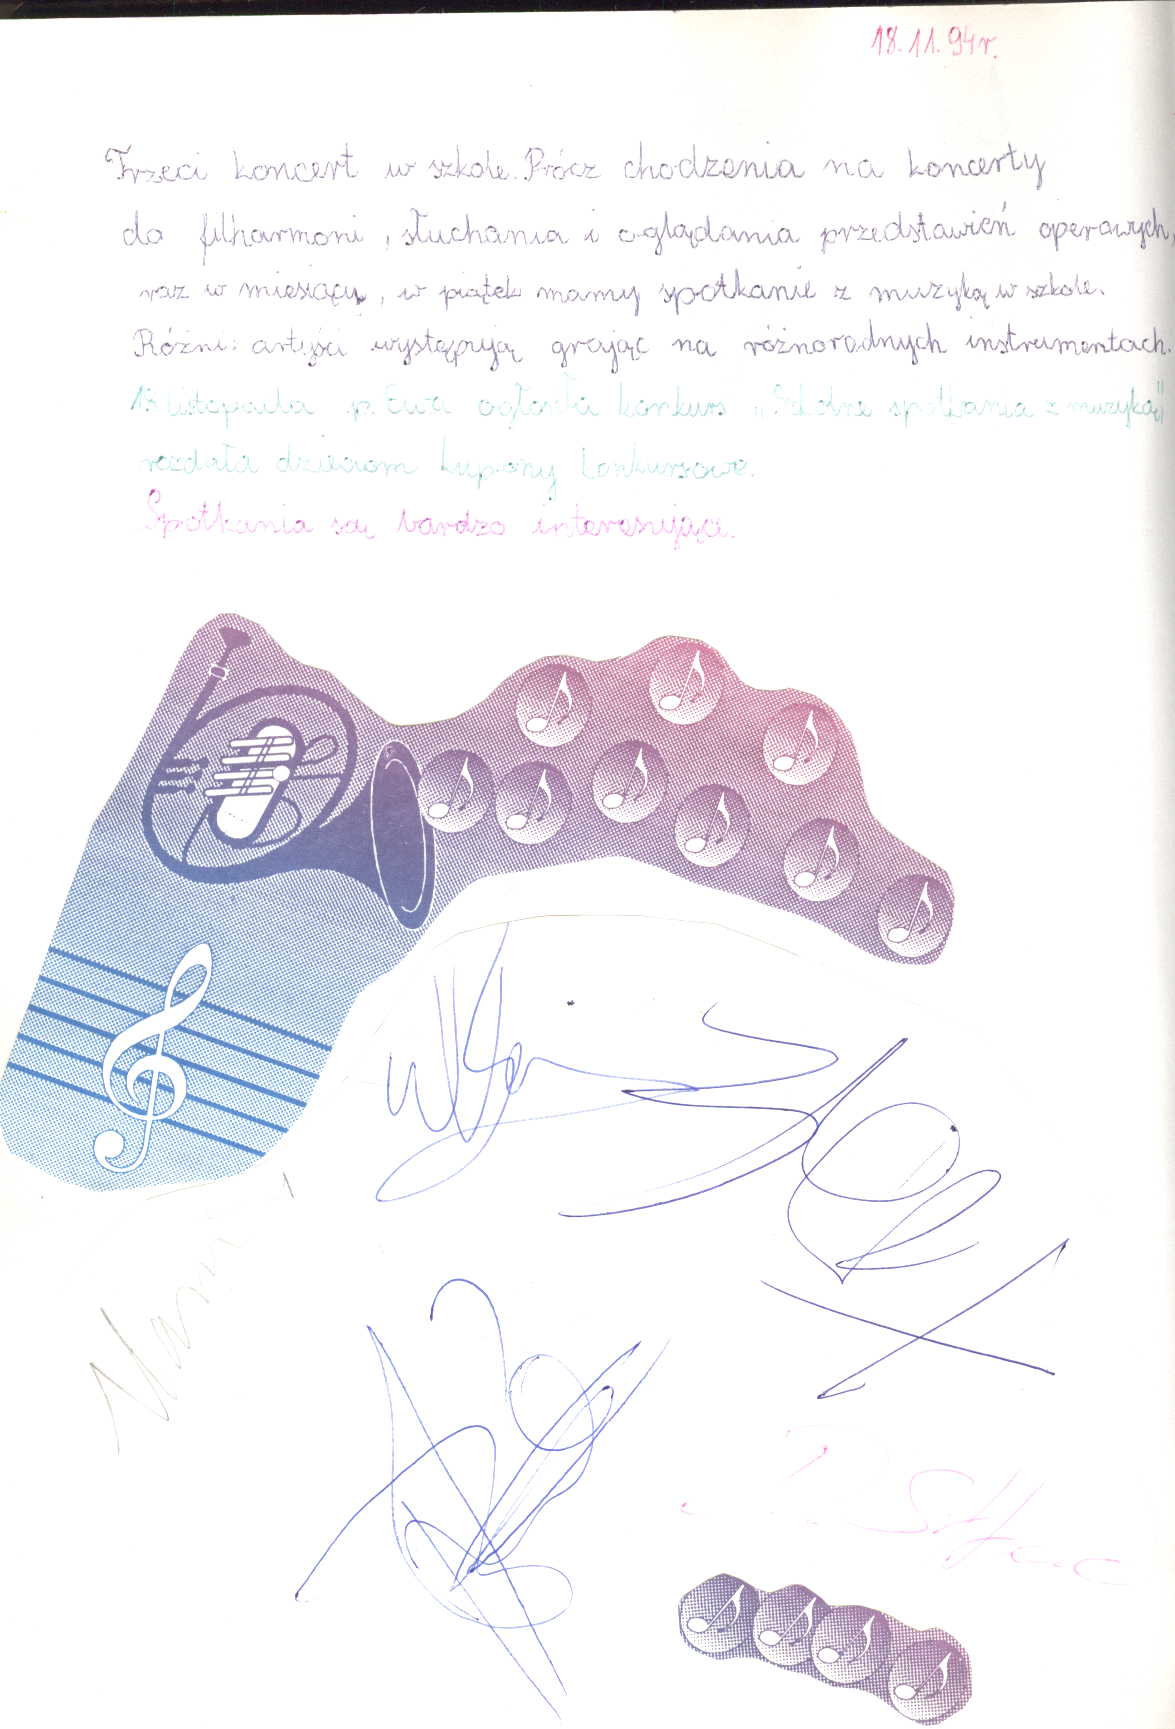 18.11.94r.
Trzeci koncert w szkole. Prócz chodzenia na koncerty
do filharmoni, słuchania i oglądania przedstawień operowych,
raz w miesiącu, w piątek mamy spotkanie z muzyką w szkole.
Różni artyści występują grając na różnorodnych instrumentach.
listopada p. Ewa ogłosiła konkurs „Szkolne spotkania z muzyką"
rozdała dzieciom kupony konkursowe.
Spotkania są bardzo interesujące.